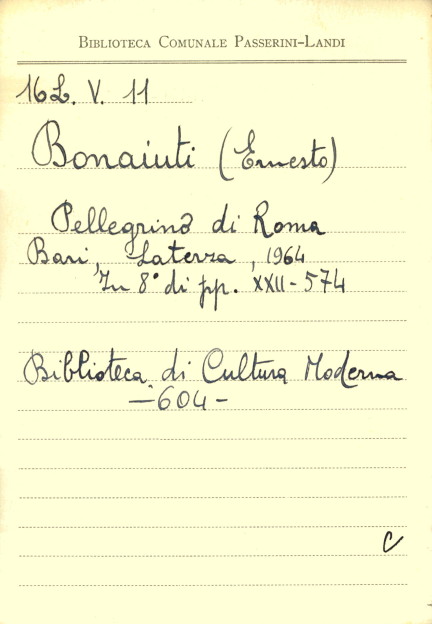 BIBLIOTECA COMUNALE PASSERINI-LANDI
16L. V. 11
Bonaiuti (Ernesto)
Pellegrino di Roma
Bari, Laterza, 1964
In 8° di pp. XXII-574
Biblioteca di Cultura Moderna
—604—
C